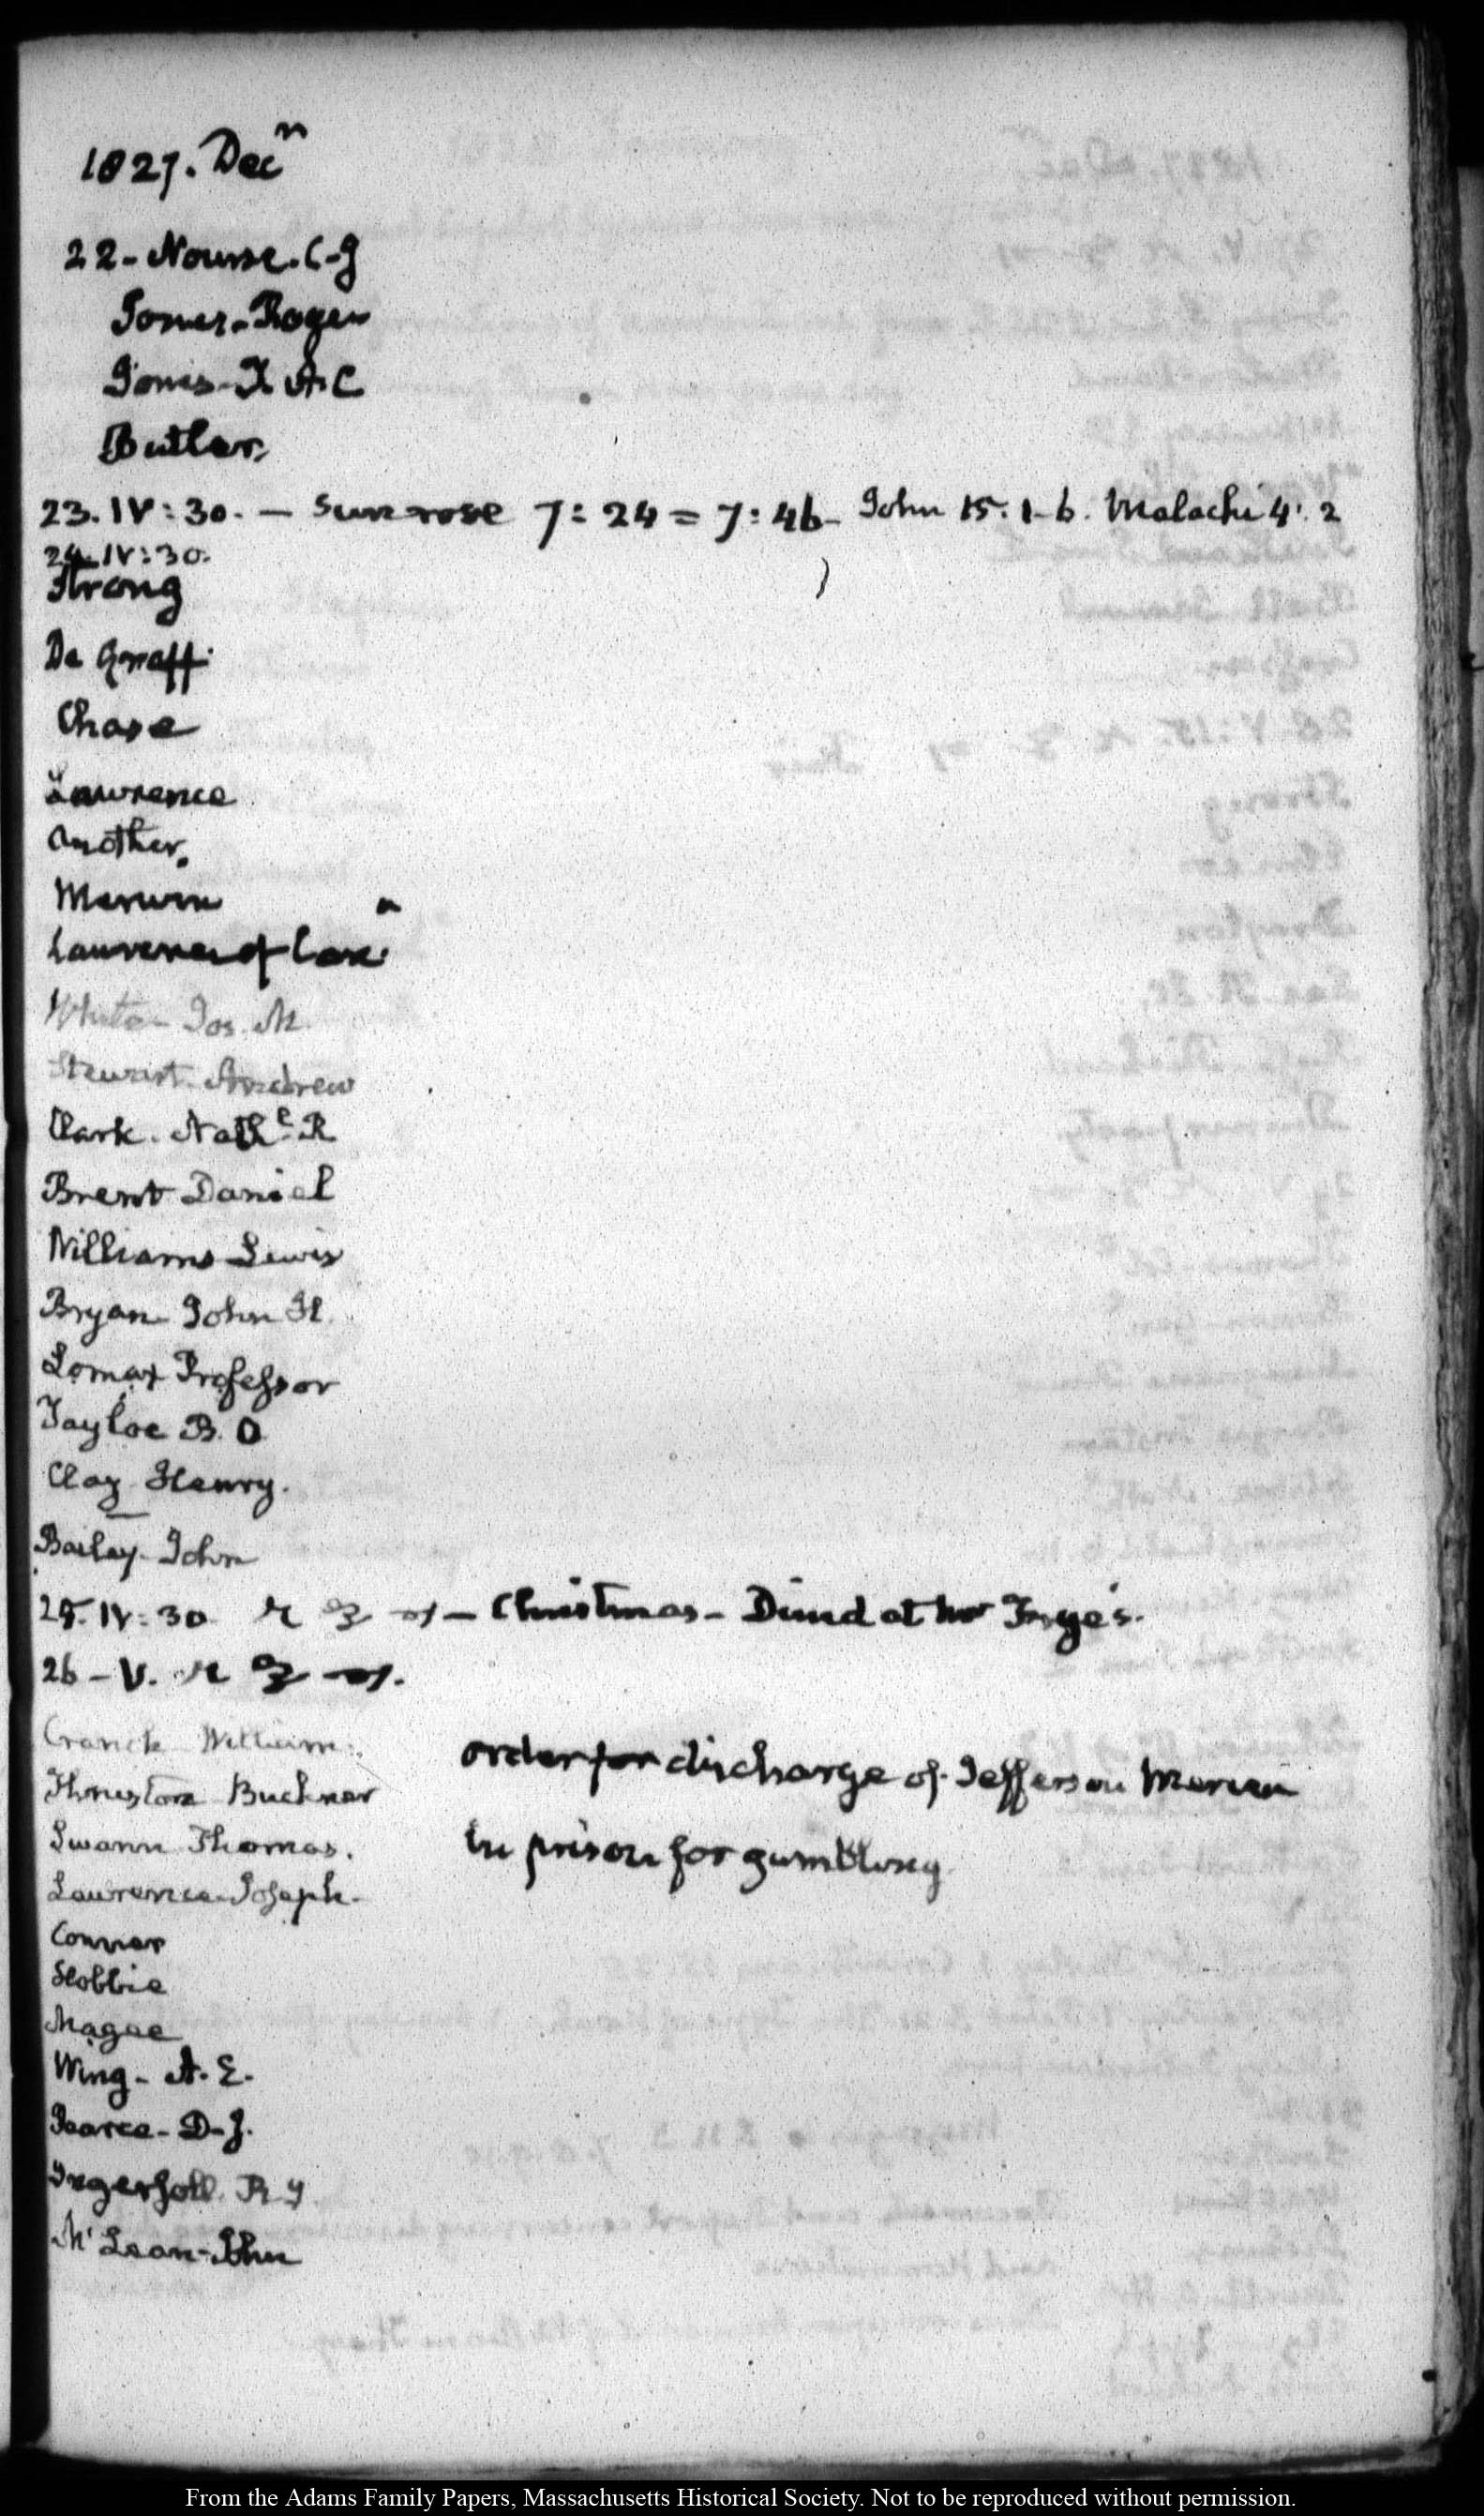 1827. Decr
22 - Nourse. C. J
Jones - Roger
Jones - T. Ap C
Butler.
23. IV: 30. — Sun rose 7: 24 = 7: 46 - John 15: 1-6. Malachi 4: 2
24. IV: 30.
Strong
De Graff.
Chase
Lawrence
Another.
Marvin
Lawrence of
White - Jos. M.
Stewart. Andrew
Clark. Nathl. R
Brent Daniel
Williams Lewis
Bryan John H.
Lomax Professor
Tayloe B. O
Clay Henry.
Bailey John
25. IV: 30 — Christmas - Dined at Mr Frye's.
26 - V.
Cranch William.
Thruston Buckner
order for discharge of Jefferson
Swann Thomas.
in prison for gambling.
Lawrence Joseph.
Conner
Hobbie
Magee
Wing - A. E.
Pearce - D. J.
Ingersoll. R. I
McLean - John
From the Adams Family Papers, Massachusetts Historical Society. Not to be reproduced without permission.